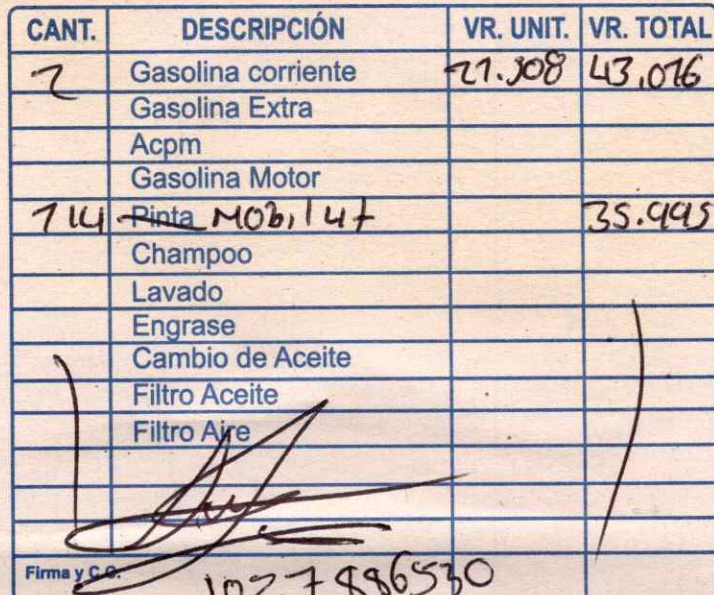 CANT. DESCRIPCIÓN VR. UNIT. VR. TOTAL
2 Gasolina corriente 21.508 43,016
Gasolina Extra
Acpm
Gasolina Motor
1/4 Pinta MObil 4t 35.995
Champoo
Lavado
Engrase
Cambio de Aceite
Filtro Aceite
Filtro Aire
Firma y C.C. 1027886530